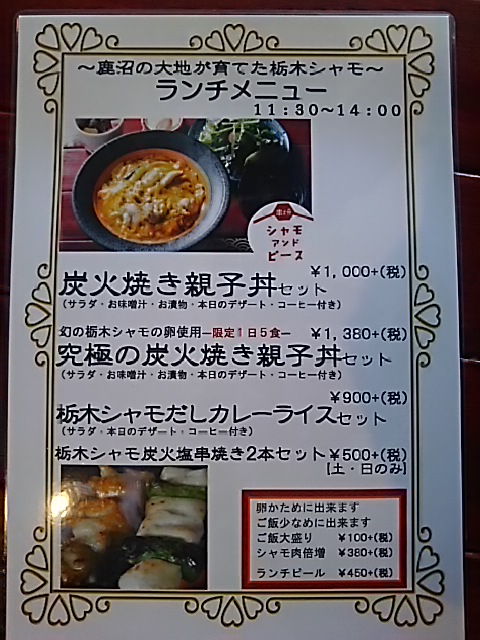 ～鹿沼の大地が育てた栃木シャモ～
ランチメニュー
11:30～14:00
シャモ
アンド
ピース
¥1,000+(税)
炭火焼き親子丼セット
(サラダ・お味噌汁・お漬物・本日のデザート・コーヒー付き)
幻の栃木シャモの卵使用―限定1日5食― ¥1,380+(税)
究極の炭火焼き親子丼セット
(サラダ・お味噌汁・お漬物・本日のデザート・コーヒー付き)
¥900+(税)
栃木シャモだしカレーライスセット
(サラダ・本日のデザート・コーヒー付き)
栃木シャモ炭火塩串焼き2本セット ¥500+(税)
[土・日のみ]
卵かために出来ます
ご飯少なめに出来ます
ご飯大盛り ¥100+(税)
シャモ肉倍増 ¥380+(税)
ランチビール ¥450+(税)